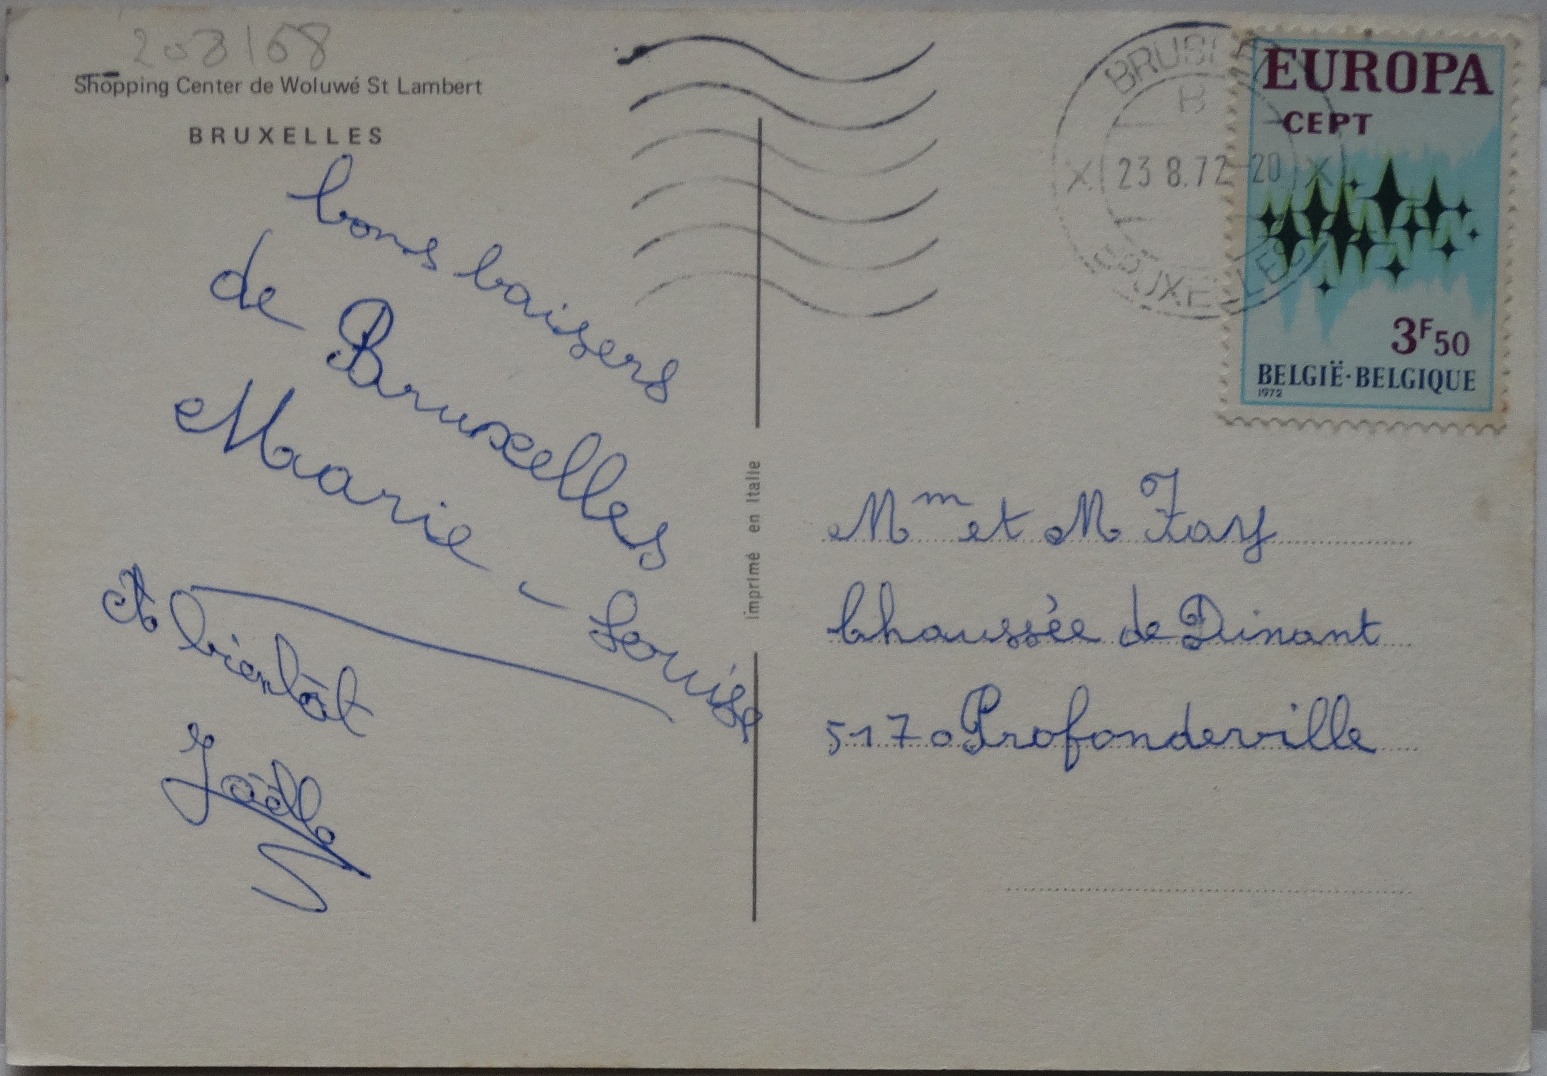 203168
Shopping Center de Woluwé St Lambert
BRUXELLES
bons baisers
de Bruxelles
Marie-Louise
A bientôt
Joëlle
imprimé en Italie
BRUSSEL
B
X 23 8.72-20 X
BRUXELLES
EUROPA
CEPT
3F50
BELGIË·BELGIQUE
1972
Mm et M Fay
Chaussée de Dinant
5170 Profondeville